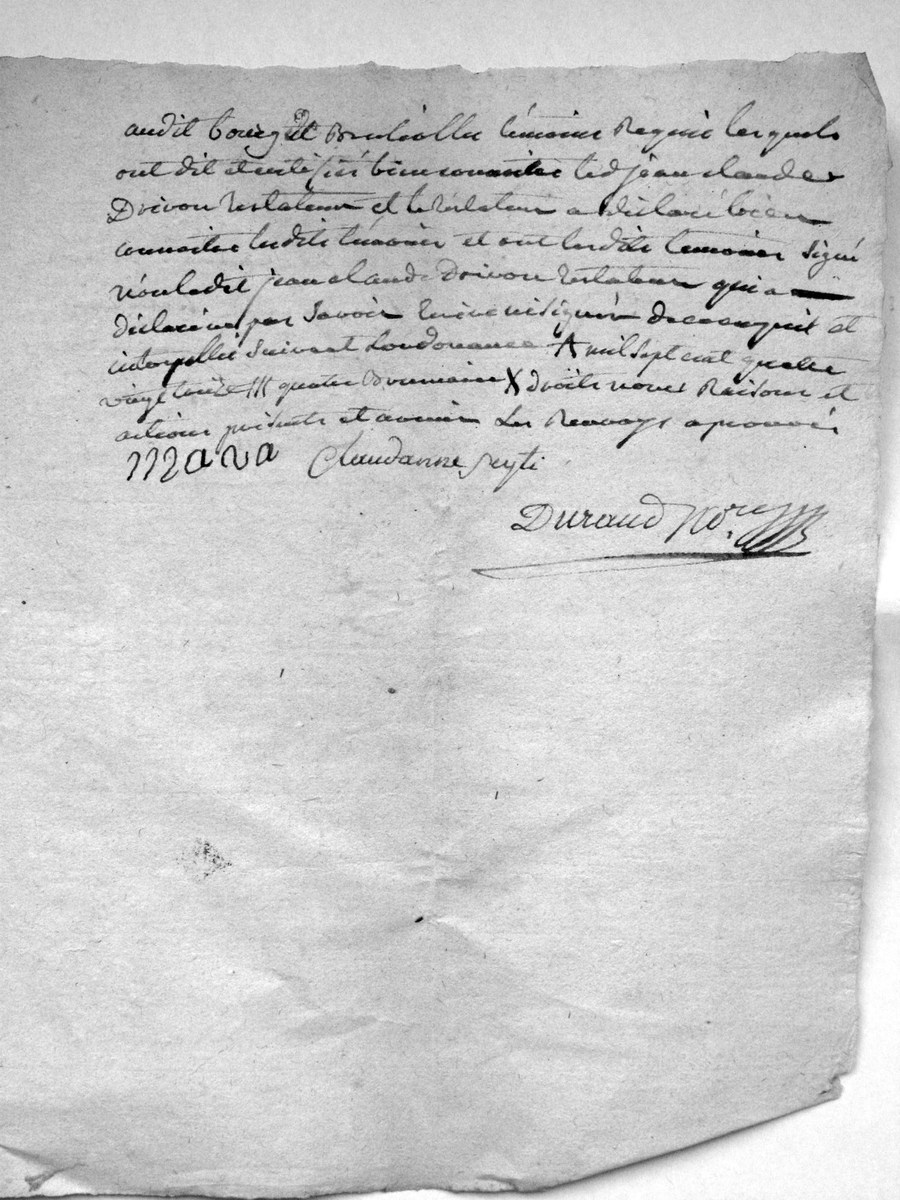 audit bourg de Brulliolles témoins Requis lesquels
ont dit et certiffié bien connaitre led jean claude
Drivon testateur et le testateur a déclaré bien
connaitre lesdits témoins et ont lesdits temoins signé
non ledit jean claude Drivon testateur qui a
déclaré ne pas Savoir Ecrire ni signer de ce enquis et
interpellé suivant Lordonnance A mil sept cent quatre
vingt treize /// quatre Brumaire X droits noms Raisons et
actions présents et avenir Les Renvoys aprouvés
Mava Claudanne
Durand No.re